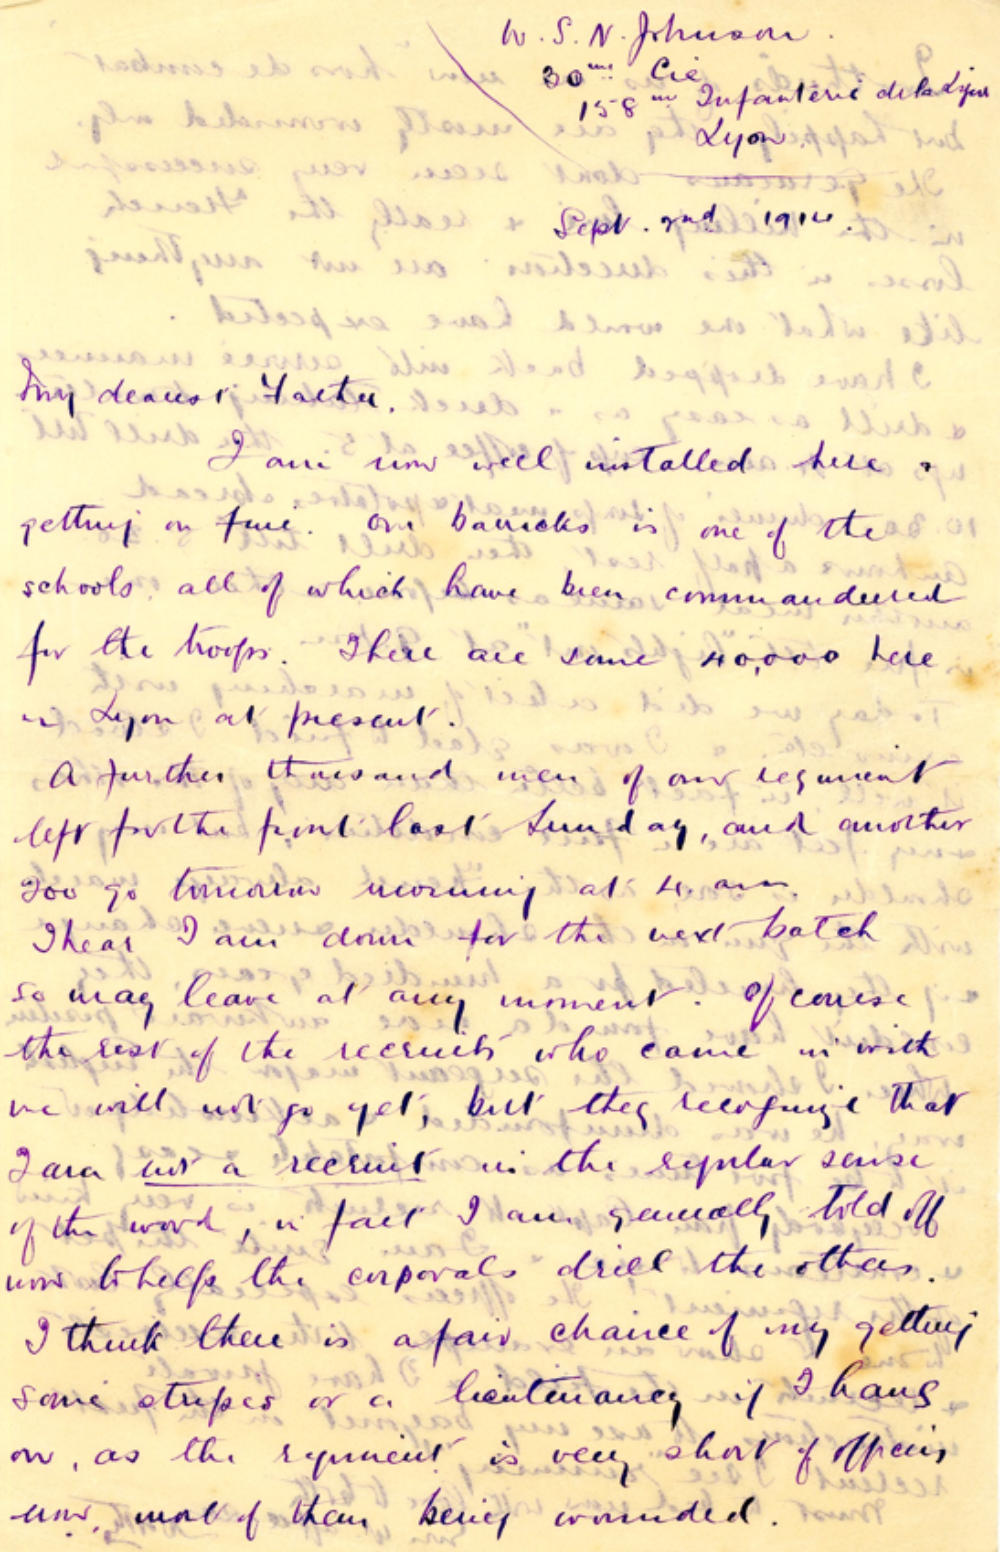 W. S. N. Johnson.
30me Cie
158me Infanterie de la Ligne
Lyon.
Sept. 2nd 1914.
My dearest Father,
I am now well installed here &
getting on fine. Our barracks is one of the
schools, all of which have been commandeered
for the troops. There are some 40,000 here
in Lyon at present.
A further thousand men of our regiment
left for the front last Sunday, and another
700 go tomorrow morning at 4. am.
I hear I am down for the next batch
so may leave at any moment. Of course
the rest of the recruits who came in with
me will not go yet, but they recognize that
I am not a recruit in the regular sense
of the word, in fact I am generally told off
now to help the corporals drill the others.
I think there is a fair chance of my getting
some stripes or a lieutenancy if I hang
on, as the regiment is very short of officers
now, most of them being wounded.